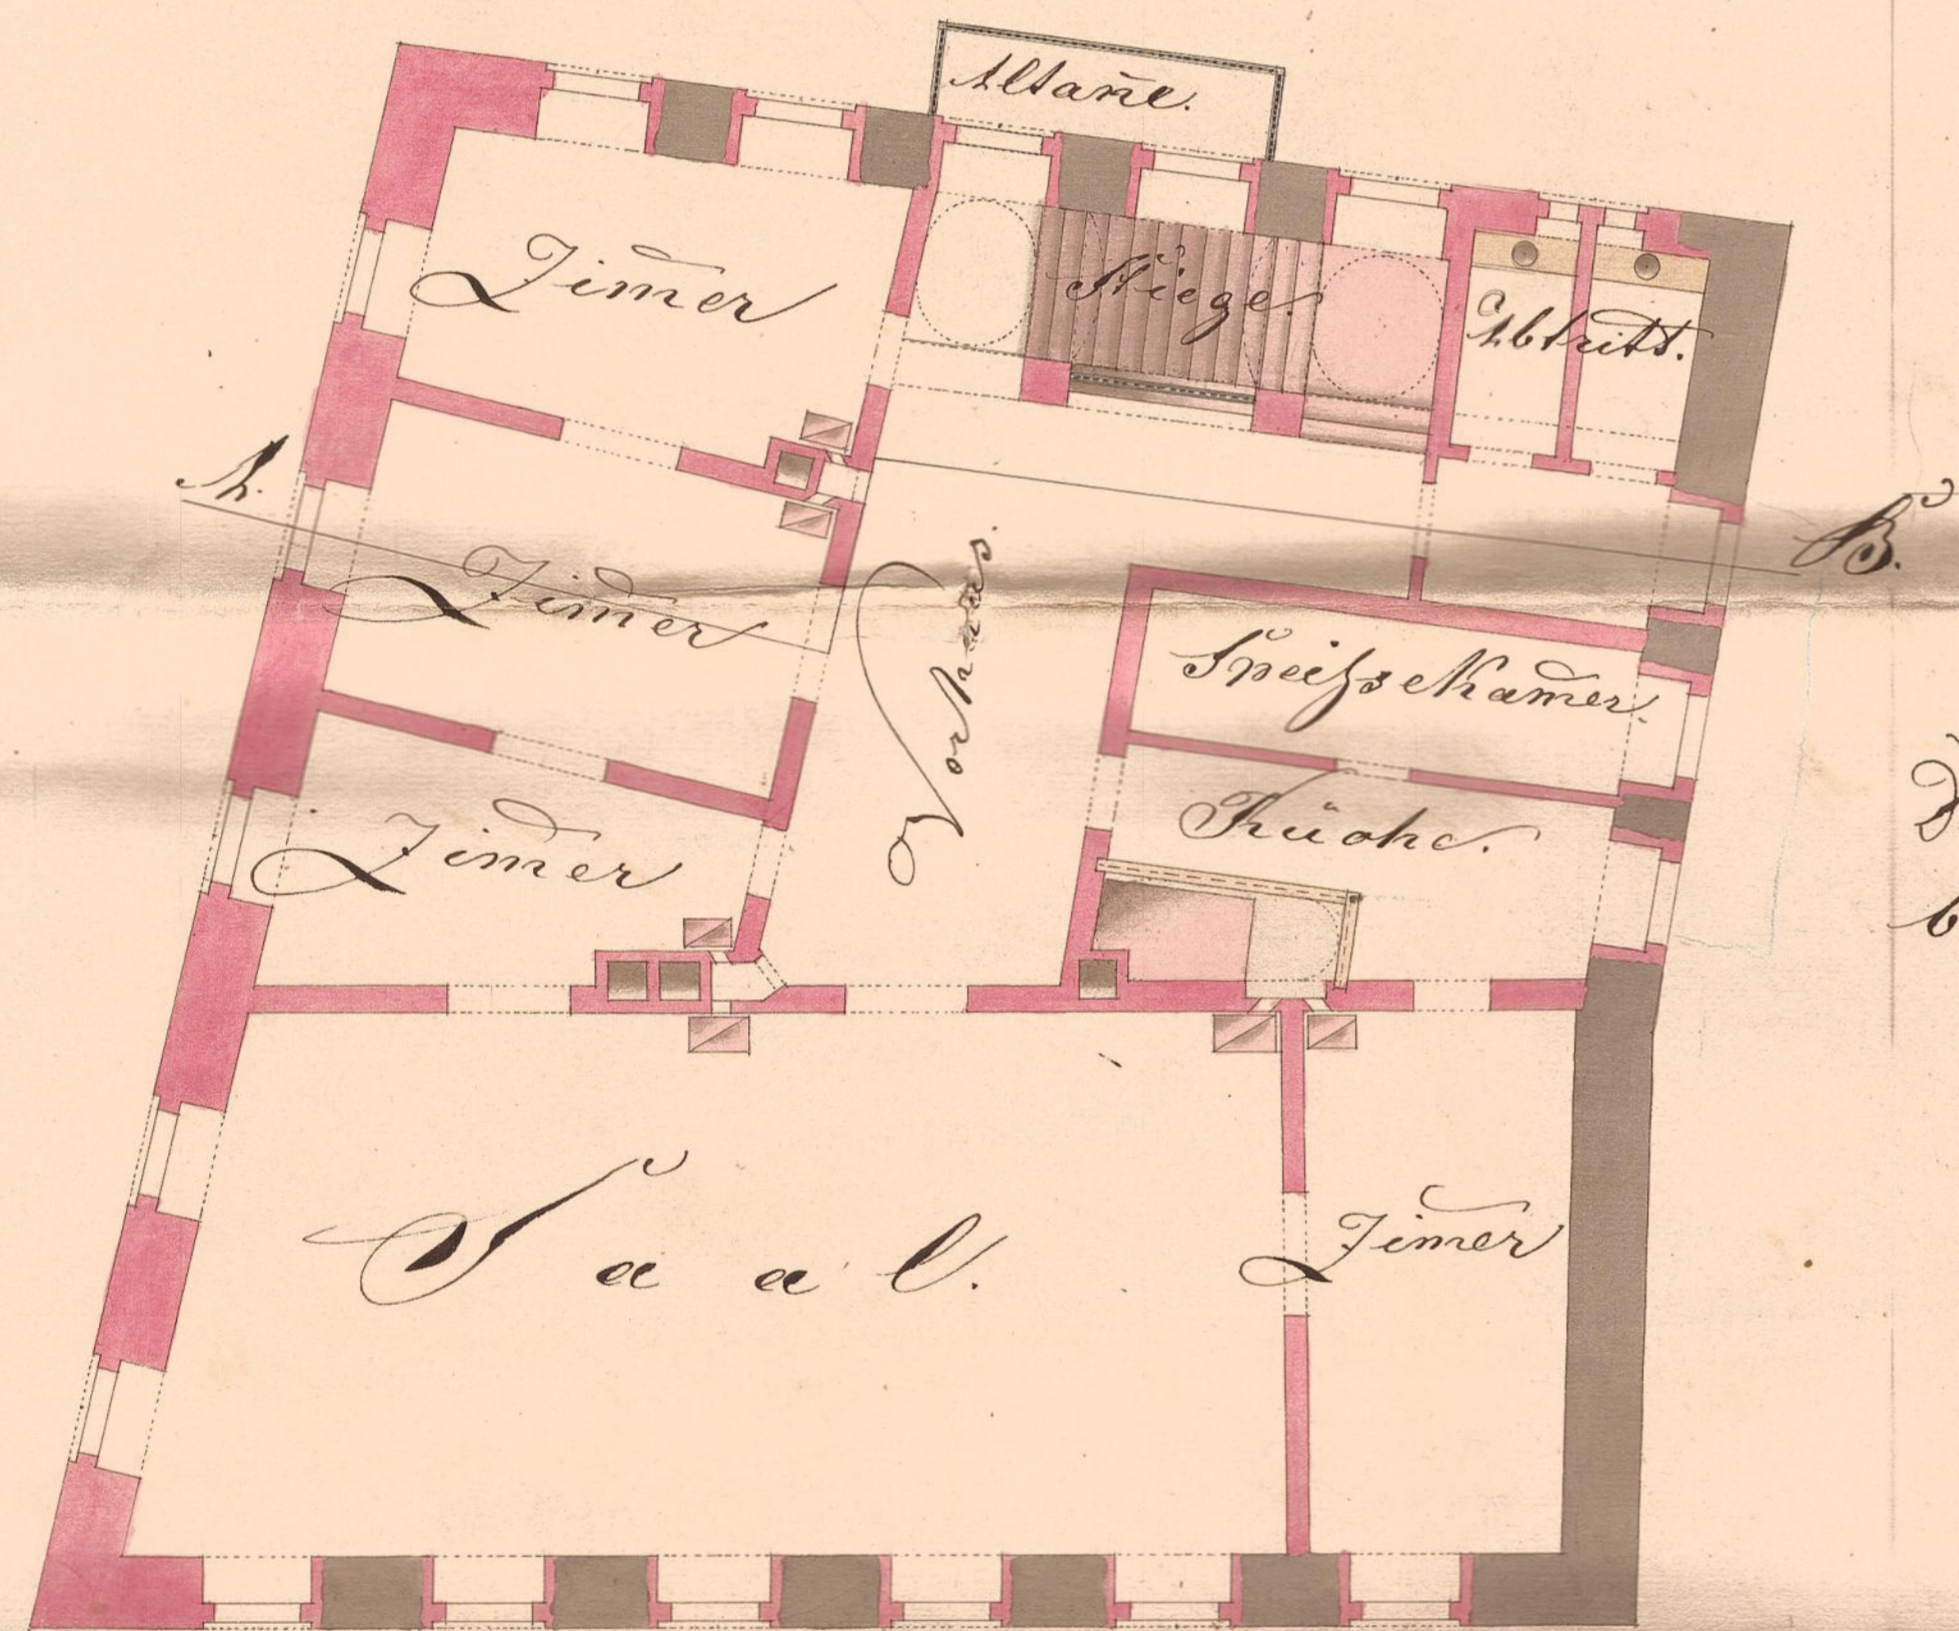 Altañe.
Zim̅er
Stiege.
Abtritt.
A.
B.
Zim̅er
Vorhaus.
Speisse Kam̅er.
Zim̅er
Küche.
Saal.
Zim̅er